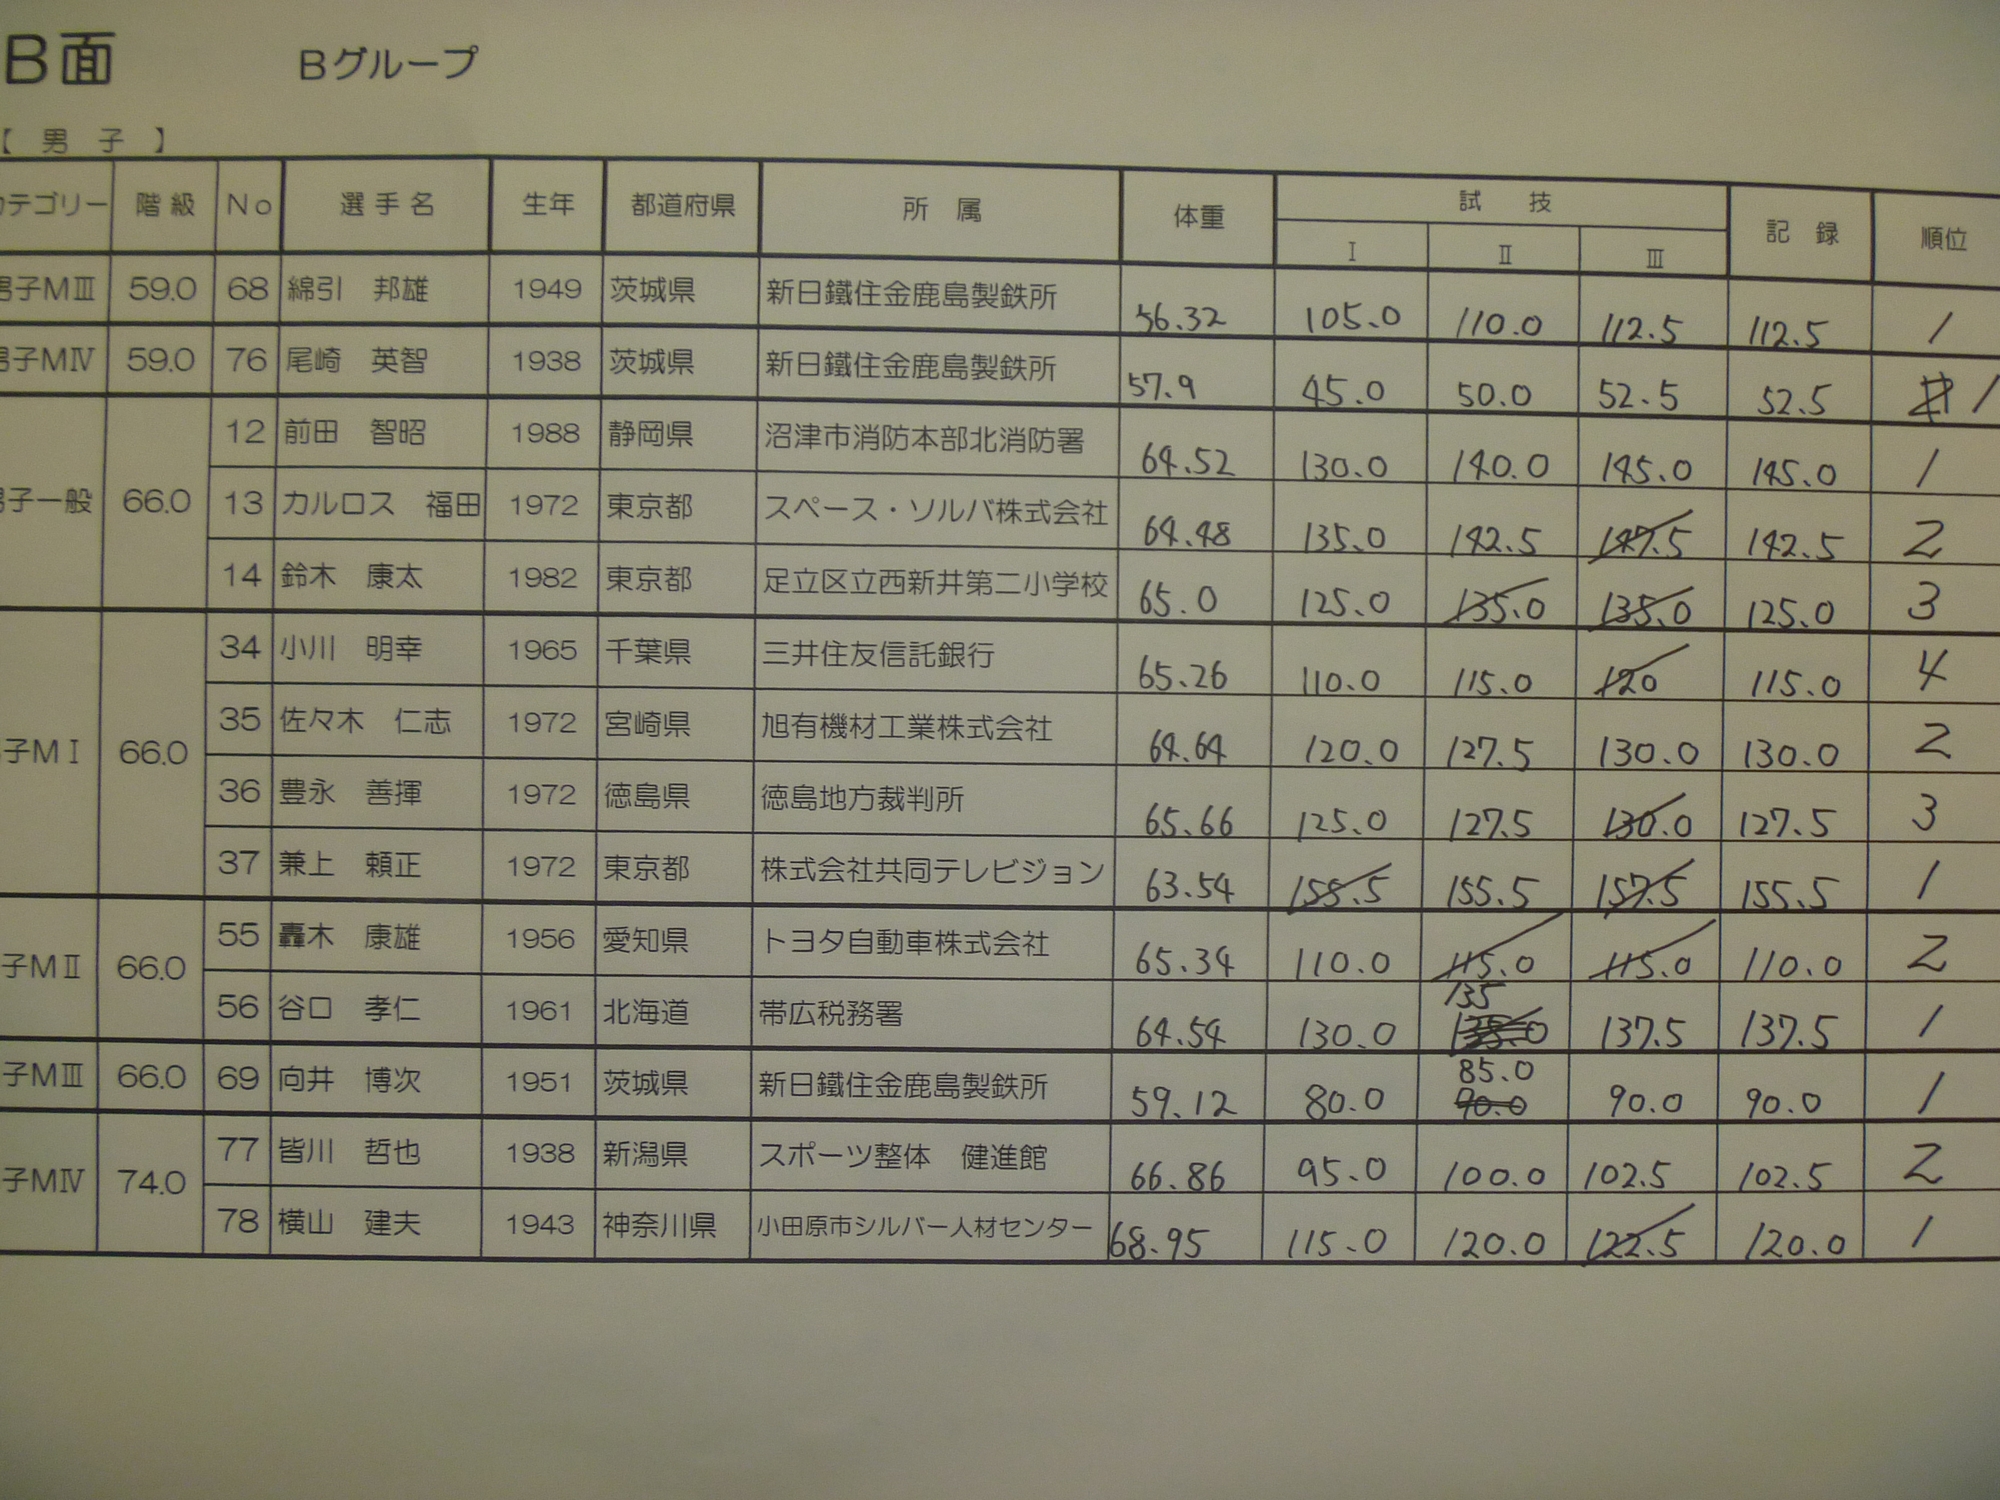 B面 Bグループ
【 男 子 】
カテゴリー 階級 No 選手名 生年 都道府県 所属 体重 試技 記録 順位
I II III
男子MⅢ 59.0 68 綿引 邦雄 1949 茨城県 新日鐵住金鹿島製鉄所 56.32 105.0 110.0 112.5 112.5 1
男子MⅣ 59.0 76 尾崎 英智 1938 茨城県 新日鐵住金鹿島製鉄所 57.9 45.0 50.0 52.5 52.5 1
男子一般 66.0 12 前田 智昭 1988 静岡県 沼津市消防本部北消防署 64.52 130.0 140.0 145.0 145.0 1
13 カルロス 福田 1972 東京都 スペース・ソルバ株式会社 64.48 135.0 142.5 147.5 142.5 2
14 鈴木 康太 1982 東京都 足立区立西新井第二小学校 65.0 125.0 135.0 135.0 125.0 3
子MⅠ 66.0 34 小川 明幸 1965 千葉県 三井住友信託銀行 65.26 110.0 115.0 120 115.0 4
35 佐々木 仁志 1972 宮崎県 旭有機材工業株式会社 64.64 120.0 127.5 130.0 130.0 2
36 豊永 善揮 1972 徳島県 徳島地方裁判所 65.66 125.0 127.5 130.0 127.5 3
37 兼上 頼正 1972 東京都 株式会社共同テレビジョン 63.54 155.5 155.5 157.5 155.5 1
子MⅡ 66.0 55 轟木 康雄 1956 愛知県 トヨタ自動車株式会社 65.34 110.0 115.0 115.0 110.0 2
56 谷口 孝仁 1961 北海道 帯広税務署 64.54 130.0 135 137.5 137.5 1
子MⅢ 66.0 69 向井 博次 1951 茨城県 新日鐵住金鹿島製鉄所 59.12 80.0 85.0 90.0 90.0 90.0 1
子MⅣ 74.0 77 皆川 哲也 1938 新潟県 スポーツ整体 健進館 66.86 95.0 100.0 102.5 102.5 2
78 横山 建夫 1943 神奈川県 小田原市シルバー人材センター 68.95 115.0 120.0 122.5 120.0 1